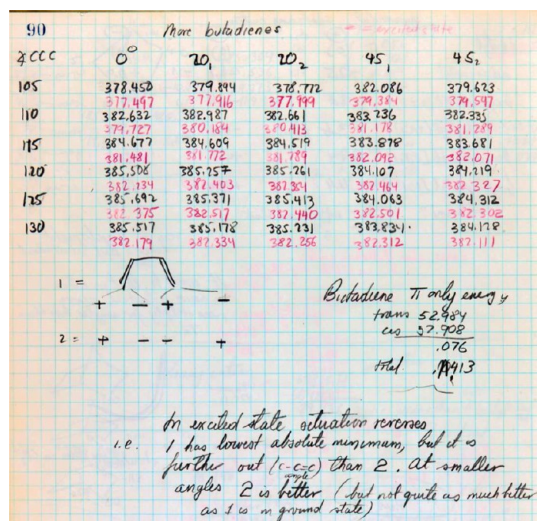 90 More butadienes = excited state
∡CCC 0° 20₁ 20₂ 45₁ 45₂
105 378.450 379.244 378.772 382.086 379.623
377.497 377.916 377.799 379.384 379.547
110 382.632 382.927 382.661 383.236 382.335
379.727 380.184 380.413 381.178 381.289
115 384.677 384.609 384.519 383.878 383.681
381.481 381.772 381.789 382.092 382.071
120 385.508 385.257 385.261 384.107 384.219
382.234 382.403 382.464 382.327
125 385.692 385.371 385.413 384.063 384.312
382.375 382.517 382.440 382.501 382.302
130 385.517 385.178 385.231 383.831 384.128
382.179 382.334 382.256 382.312 382.111
1 =
+ - + -
2 = + - - +
Butadiene π only energy
trans 52.984
cis 52.908
.076
total 413
In excited state situation reverses,
i.e. 1 has lowest absolute minimum, but it is
further out (c-c=c) than 2. At smaller
angle
angles 2 is better (but not quite as much better
as 1 is in ground state)